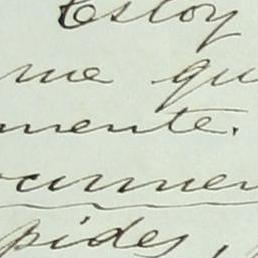 Estoy
me qu
mente.
cumen
pides,